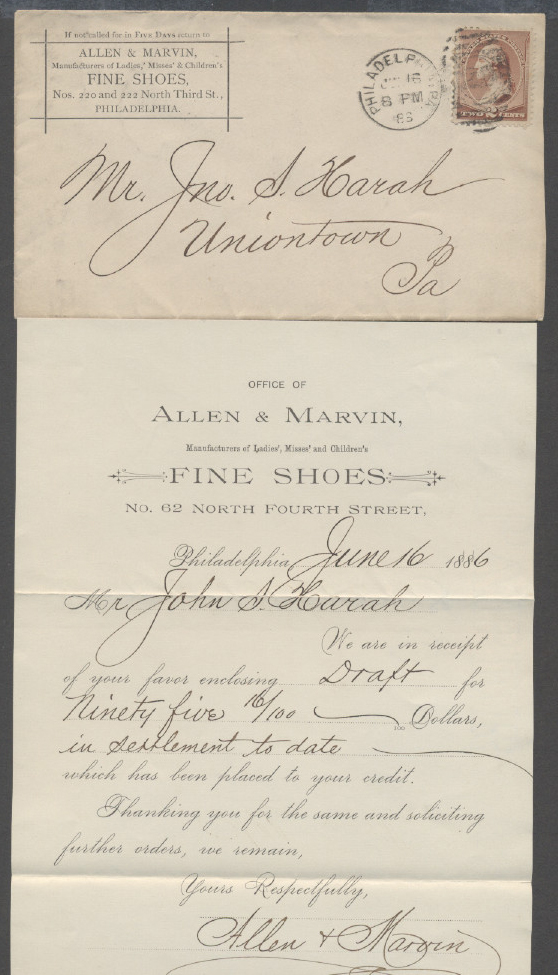 If not called for in FIVE DAYS return to
ALLEN & MARVIN,
Manufacturers of Ladies,' Misses' & Children's
FINE SHOES,
Nos. 220 and 222 North Third St.,
PHILADELPHIA.
PHILADELPHIA, PA.
16
8 PM
86
TWO 2 CENTS
Mr. Jno. S. Harah
Uniontown
Pa
OFFICE OF
ALLEN & MARVIN,
Manufacturers of Ladies', Misses' and Children's
FINE SHOES
No. 62 NORTH FOURTH STREET,
Philadelphia, June 16 1886
Mr John S. Harah
We are in receipt
of your favor enclosing Draft for
Ninety five 16/100 100 Dollars,
in settlement to date
which has been placed to your credit.
Thanking you for the same and soliciting
further orders, we remain,
Yours Respectfully,
Allen & Marvin